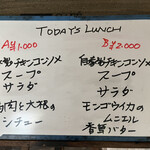 TODAY'S LUNCH
A ¥1,000
自家製チキンコンソメ
スープ
サラダ
肉と大根の
シチュー
B ¥2,000
自家製チキンコンソメ
スープ
サラダ
モンゴウイカの
ムニエル
香草バター